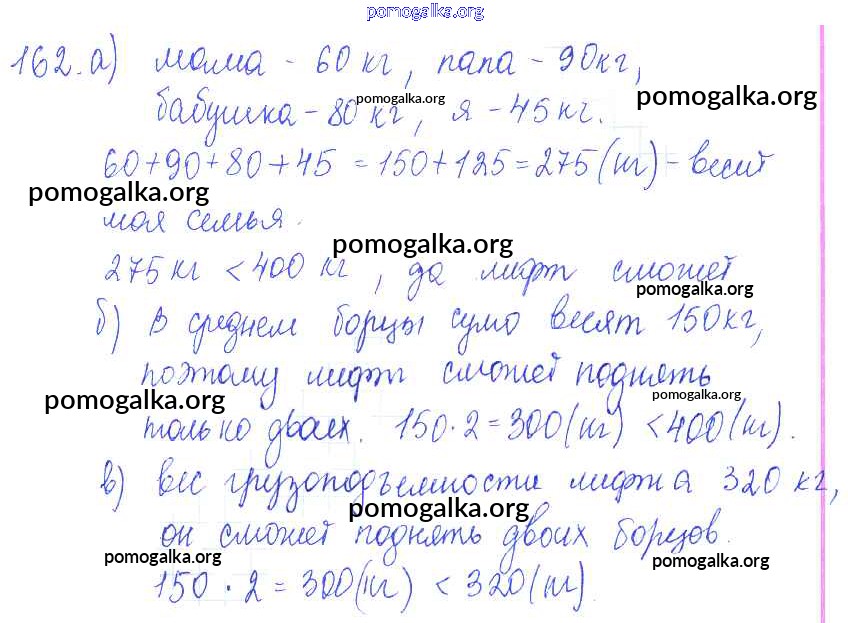 pomogalka.org
162. а) мама - 60 кг, папа - 90кг,
pomogalka.org
бабушка - 80 кг, я - 45 кг.
pomogalka.org
60+90+80+45 = 150+125 = 275 (кг) - весит
pomogalka.org
моя семья.
pomogalka.org
275 кг < 400 кг, да лифт сможет
pomogalka.org
б) В среднем борцы сумо весят 150кг,
поэтому лифт сможет поднять
pomogalka.org
pomogalka.org
только двоих. 150·2=300(кг) <400(кг).
в) вес грузоподъемности лифта 320 кг,
pomogalka.org
он сможет поднять двоих борцов.
pomogalka.org
pomogalka.org
150 · 2 = 300(кг) < 320(кг).